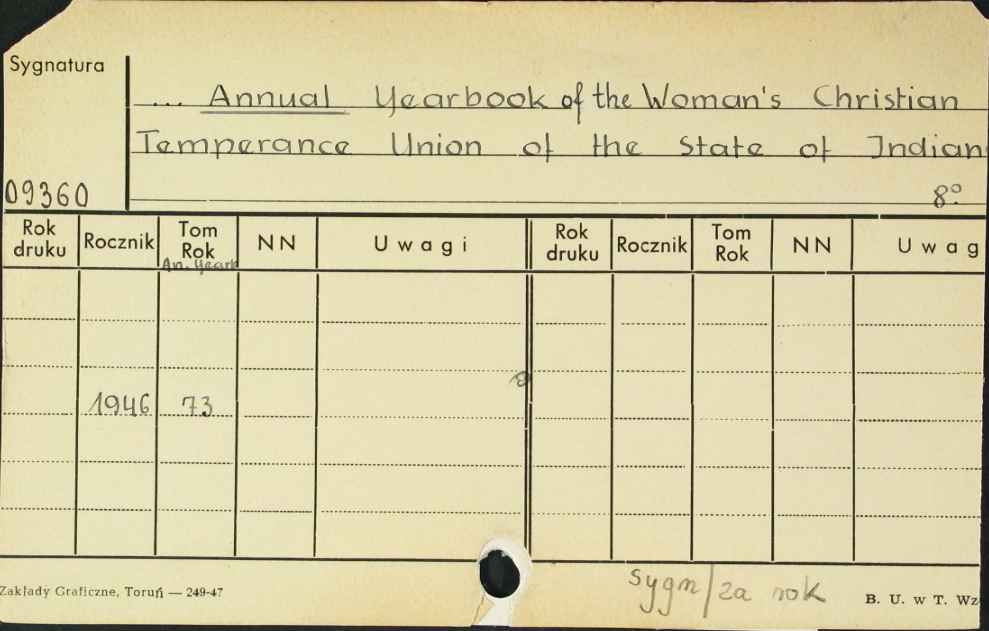 Sygnatura
... Annual Yearbook of the Woman's Christian
Temperance Union of the State of Indian
09360
8°
Rok druku Rocznik Tom Rok NN Uwagi Rok druku Rocznik Tom Rok NN Uwag
An. Yearb
1946 73
Zakłady Graficzne, Toruń — 249-47
sygn/za rok
B. U. w T. Wz